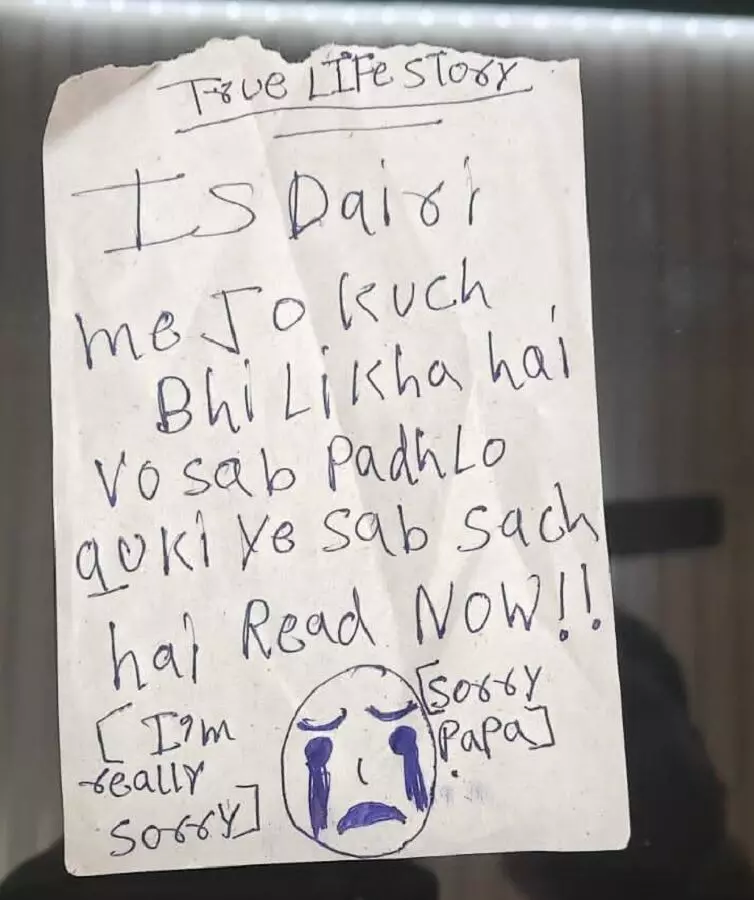 True LIFe STory
IS Dairi
me Jo kuch
Bhi Likha hai
Vo sab Padh Lo
quki ye sab sach
hai Read NOW!!
[Sorry
Papa]
[I'm
really
sorry]